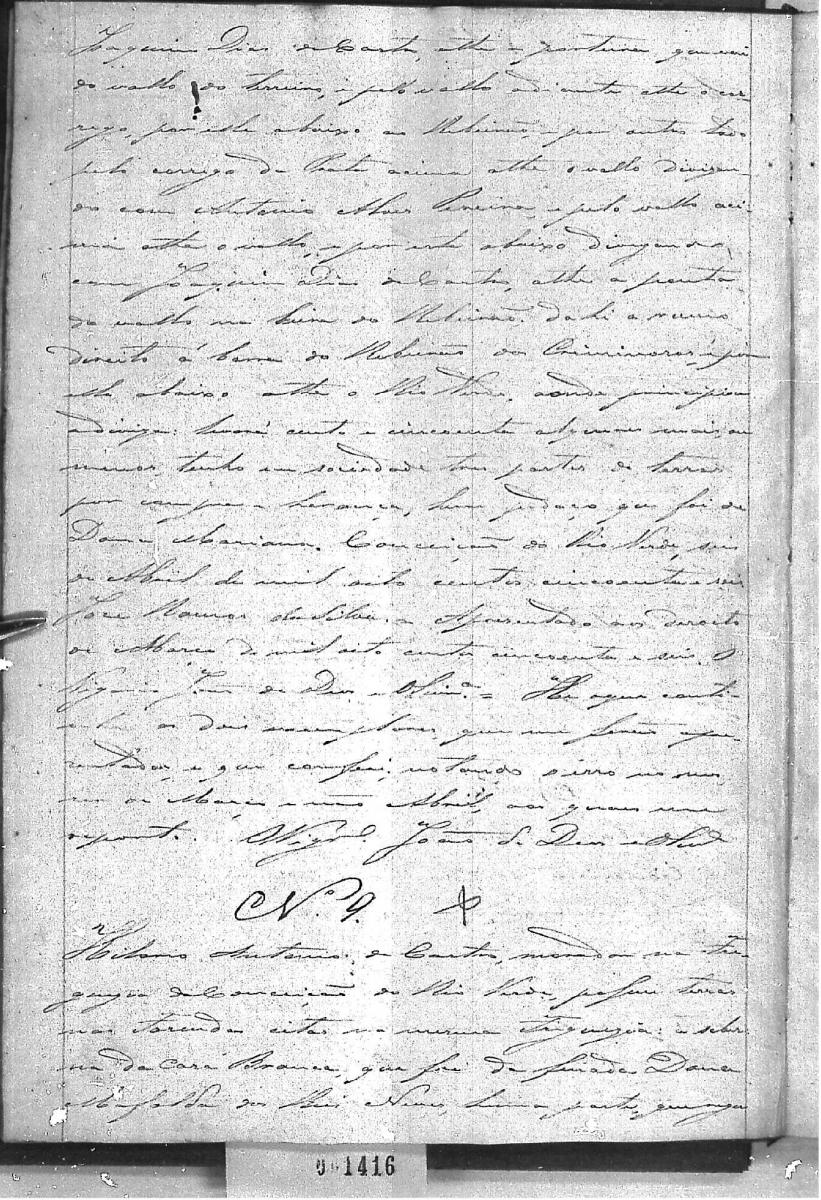 Joaquim Dias de Castro, athe a porteira que vai
do vallo do terreiro, e pelo vallo adiante athe o cor-
rego, por este abaixo ao Ribeirão, e por outro lado
pelo corrego da Prata acima athe o vallo dividin-
do com Antonio Alves Pereira, e pelo vallo aci-
ma athe o vallo, e por este abaixo divizando
com Joaquim Dias de Castro, athe a ponta
do vallo na beira do Ribeirão: dahi a rumo
direito á barra do Ribeirão dos Criminosos, e por
elle abaixo athe o Rio Verde, aonde principiou
a diviza: levará cento e cincoenta alqueires mais, ou
menos, tenho em sociedade tres partes de terras
por compra e herança, hum pedaço que foi de
Dona Marianna. Conceição do Rio Verde, seis
de Abril de mil oito centos cincoenta e seis
José Ramos da Silva = Apresentado aos dezoito
de Março de mil oito centos cincoenta e seis. O
Vigario João de Deos e Oliv.ª = He o que conti-
nhão os dois exemplares, que me forão apre-
zentados, e que conferi, notando o erro no mes
ser de Março e não Abril, aos quaes me
reporto. O Vigr.º João de Deos e Oliv.ª
N.º 9.
Antonio de Castro, morador na Fre-
guezia da Conceição do Rio Verde, possue terras
nas fazendas citas na mesma Freguezia: a saber
na da Caza Branca, que foi da finada Dona
Mafalda dos Reis Neves, huma parte, que
1416